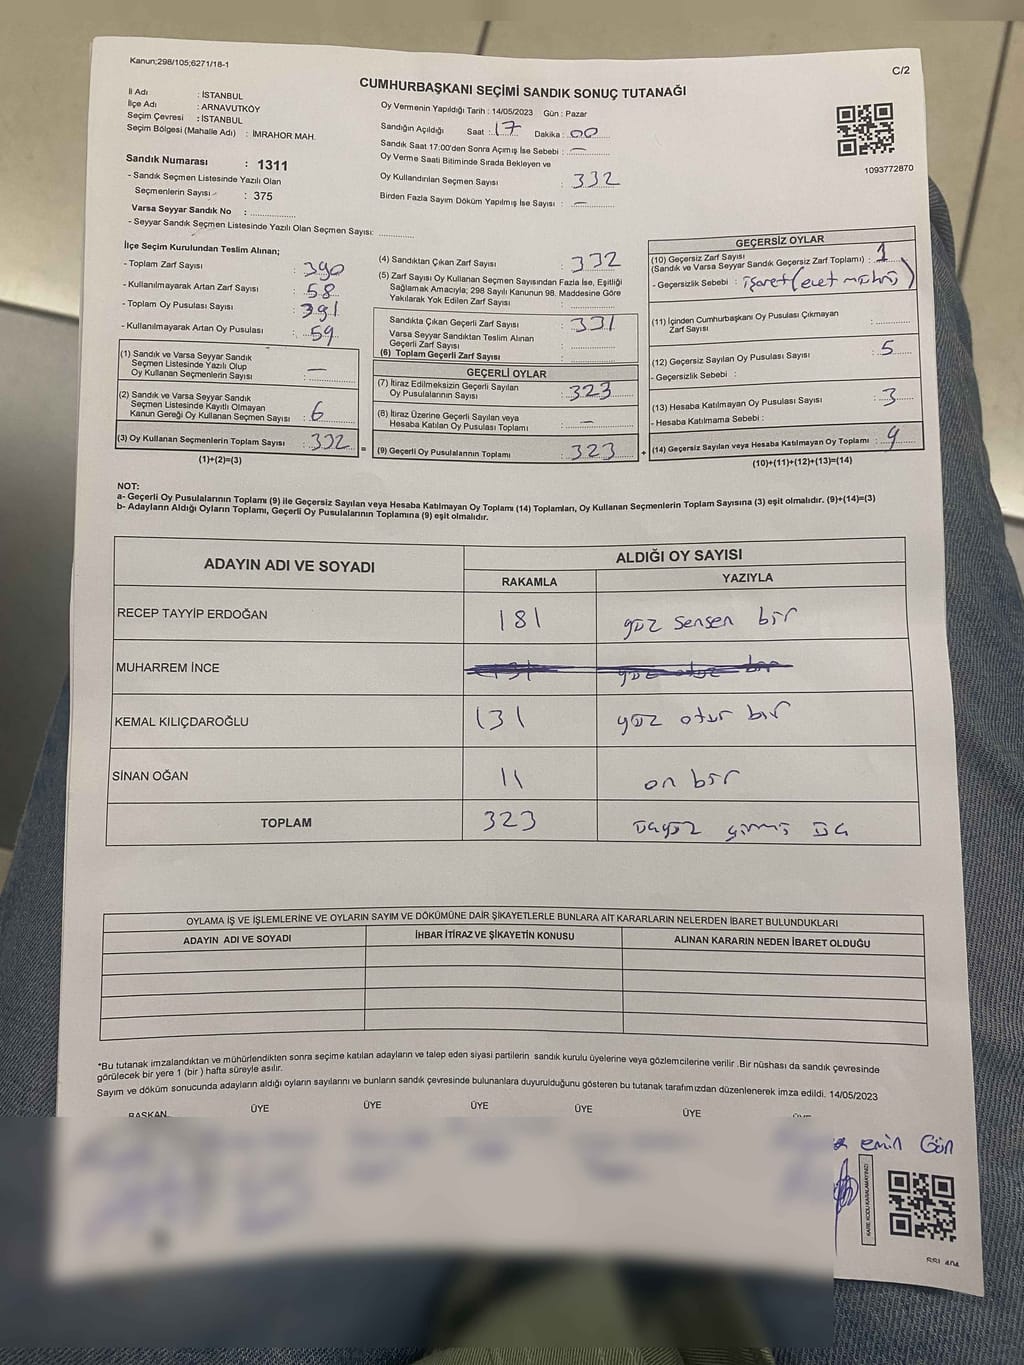 Kanun;298/105;6271/18-1
C/2
CUMHURBAŞKANI SEÇİMİ SANDIK SONUÇ TUTANAĞI
İl Adı : İSTANBUL
İlçe Adı : ARNAVUTKÖY
Seçim Çevresi : İSTANBUL
Seçim Bölgesi (Mahalle Adı) : İMRAHOR MAH.
Sandık Numarası : 1311
- Sandık Seçmen Listesinde Yazılı Olan
Seçmenlerin Sayısı : 375
Varsa Seyyar Sandık No : ................
- Seyyar Sandık Seçmen Listesinde Yazılı Olan Seçmen Sayısı: ............
Oy Vermenin Yapıldığı Tarih : 14/05/2023 Gün : Pazar
Sandığın Açıldığı Saat : 17 Dakika : 00
Sandık Saat 17:00'den Sonra Açımış İse Sebebi : —
Oy Verme Saati Bitiminde Sırada Bekleyen ve
Oy Kullandırılan Seçmen Sayısı : 332
Birden Fazla Sayım Döküm Yapılmış İse Sayısı : —
1093772870
İlçe Seçim Kurulundan Teslim Alınan;
- Toplam Zarf Sayısı : 390
- Kullanılmayarak Artan Zarf Sayısı : 58
- Toplam Oy Pusulası Sayısı : 391
- Kullanılmayarak Artan Oy Pusulası : 59
(1) Sandık ve Varsa Seyyar Sandık
Seçmen Listesinde Yazılı Olup
Oy Kullanan Seçmenlerin Sayısı : —
(2) Sandık ve Varsa Seyyar Sandık
Seçmen Listesinde Kayıtlı Olmayan
Kanun Gereği Oy Kullanan Seçmen Sayısı : 6
(3) Oy Kullanan Seçmenlerin Toplam Sayısı : 332
(1)+(2)=(3)
(4) Sandıktan Çıkan Zarf Sayısı : 332
(5) Zarf Sayısı Oy Kullanan Seçmen Sayısından Fazla İse, Eşitliği
Sağlamak Amacıyla; 298 Sayılı Kanunun 98. Maddesine Göre
Yakılarak Yok Edilen Zarf Sayısı :
Sandıkta Çıkan Geçerli Zarf Sayısı : 331
Varsa Seyyar Sandıktan Teslim Alınan
Geçerli Zarf Sayısı :
(6) Toplam Geçerli Zarf Sayısı :
GEÇERLİ OYLAR
(7) İtiraz Edilmeksizin Geçerli Sayılan
Oy Pusulalarının Sayısı : 323
(8) İtiraz Üzerine Geçerli Sayılan veya
Hesaba Katılan Oy Pusulası Toplamı : —
(9) Geçerli Oy Pusulalarının Toplamı : 323
GEÇERSİZ OYLAR
(10) Geçersiz Zarf Sayısı
(Sandık ve Varsa Seyyar Sandık Geçersiz Zarf Toplamı) : 1
- Geçersizlik Sebebi : işaret (evet mührü)
(11) İçinden Cumhurbaşkanı Oy Pusulası Çıkmayan
Zarf Sayısı :
(12) Geçersiz Sayılan Oy Pusulası Sayısı : 5
- Geçersizlik Sebebi :
(13) Hesaba Katılmayan Oy Pusulası Sayısı : 3
- Hesaba Katılmama Sebebi :
(14) Geçersiz Sayılan veya Hesaba Katılmayan Oy Toplamı : 9
(10)+(11)+(12)+(13)=(14)
NOT:
a- Geçerli Oy Pusulalarının Toplamı (9) ile Geçersiz Sayılan veya Hesaba Katılmayan Oy Toplamı (14) Toplamları, Oy Kullanan Seçmenlerin Toplam Sayısına (3) eşit olmalıdır. (9)+(14)=(3)
b- Adayların Aldığı Oyların Toplamı, Geçerli Oy Pusulalarının Toplamına (9) eşit olmalıdır.
ADAYIN ADI VE SOYADI
ALDIĞI OY SAYISI
RAKAMLA YAZIYLA
RECEP TAYYİP ERDOĞAN 181 yüz sensen bir
MUHARREM İNCE 131 yüz otuz bir
KEMAL KILIÇDAROĞLU 131 yüz otur bir
SİNAN OĞAN 11 on bir
TOPLAM 323 üçyüz yirmi üç
OYLAMA İŞ VE İŞLEMLERİNE VE OYLARIN SAYIM VE DÖKÜMÜNE DAİR ŞİKAYETLERLE BUNLARA AİT KARARLARIN NELERDEN İBARET BULUNDUKLARI
ADAYIN ADI VE SOYADI İHBAR İTİRAZ VE ŞİKAYETİN KONUSU ALINAN KARARIN NEDEN İBARET OLDUĞU
*Bu tutanak imzalandıktan ve mühürlendikten sonra seçime katılan adayların ve talep eden siyasi partilerin sandık kurulu üyelerine veya gözlemcilerine verilir .Bir nüshası da sandık çevresinde
görülecek bir yere 1 (bir ) hafta süreyle asılır.
Sayım ve döküm sonucunda adayların aldığı oyların sayılarını ve bunların sandık çevresinde bulunanlara duyurulduğunu gösteren bu tutanak tarafımızdan düzenlenerek imza edildi. 14/05/2023
BAŞKAN ÜYE ÜYE ÜYE ÜYE ÜYE
emin Gön
KARE KODU KARALAMAYINIZ!